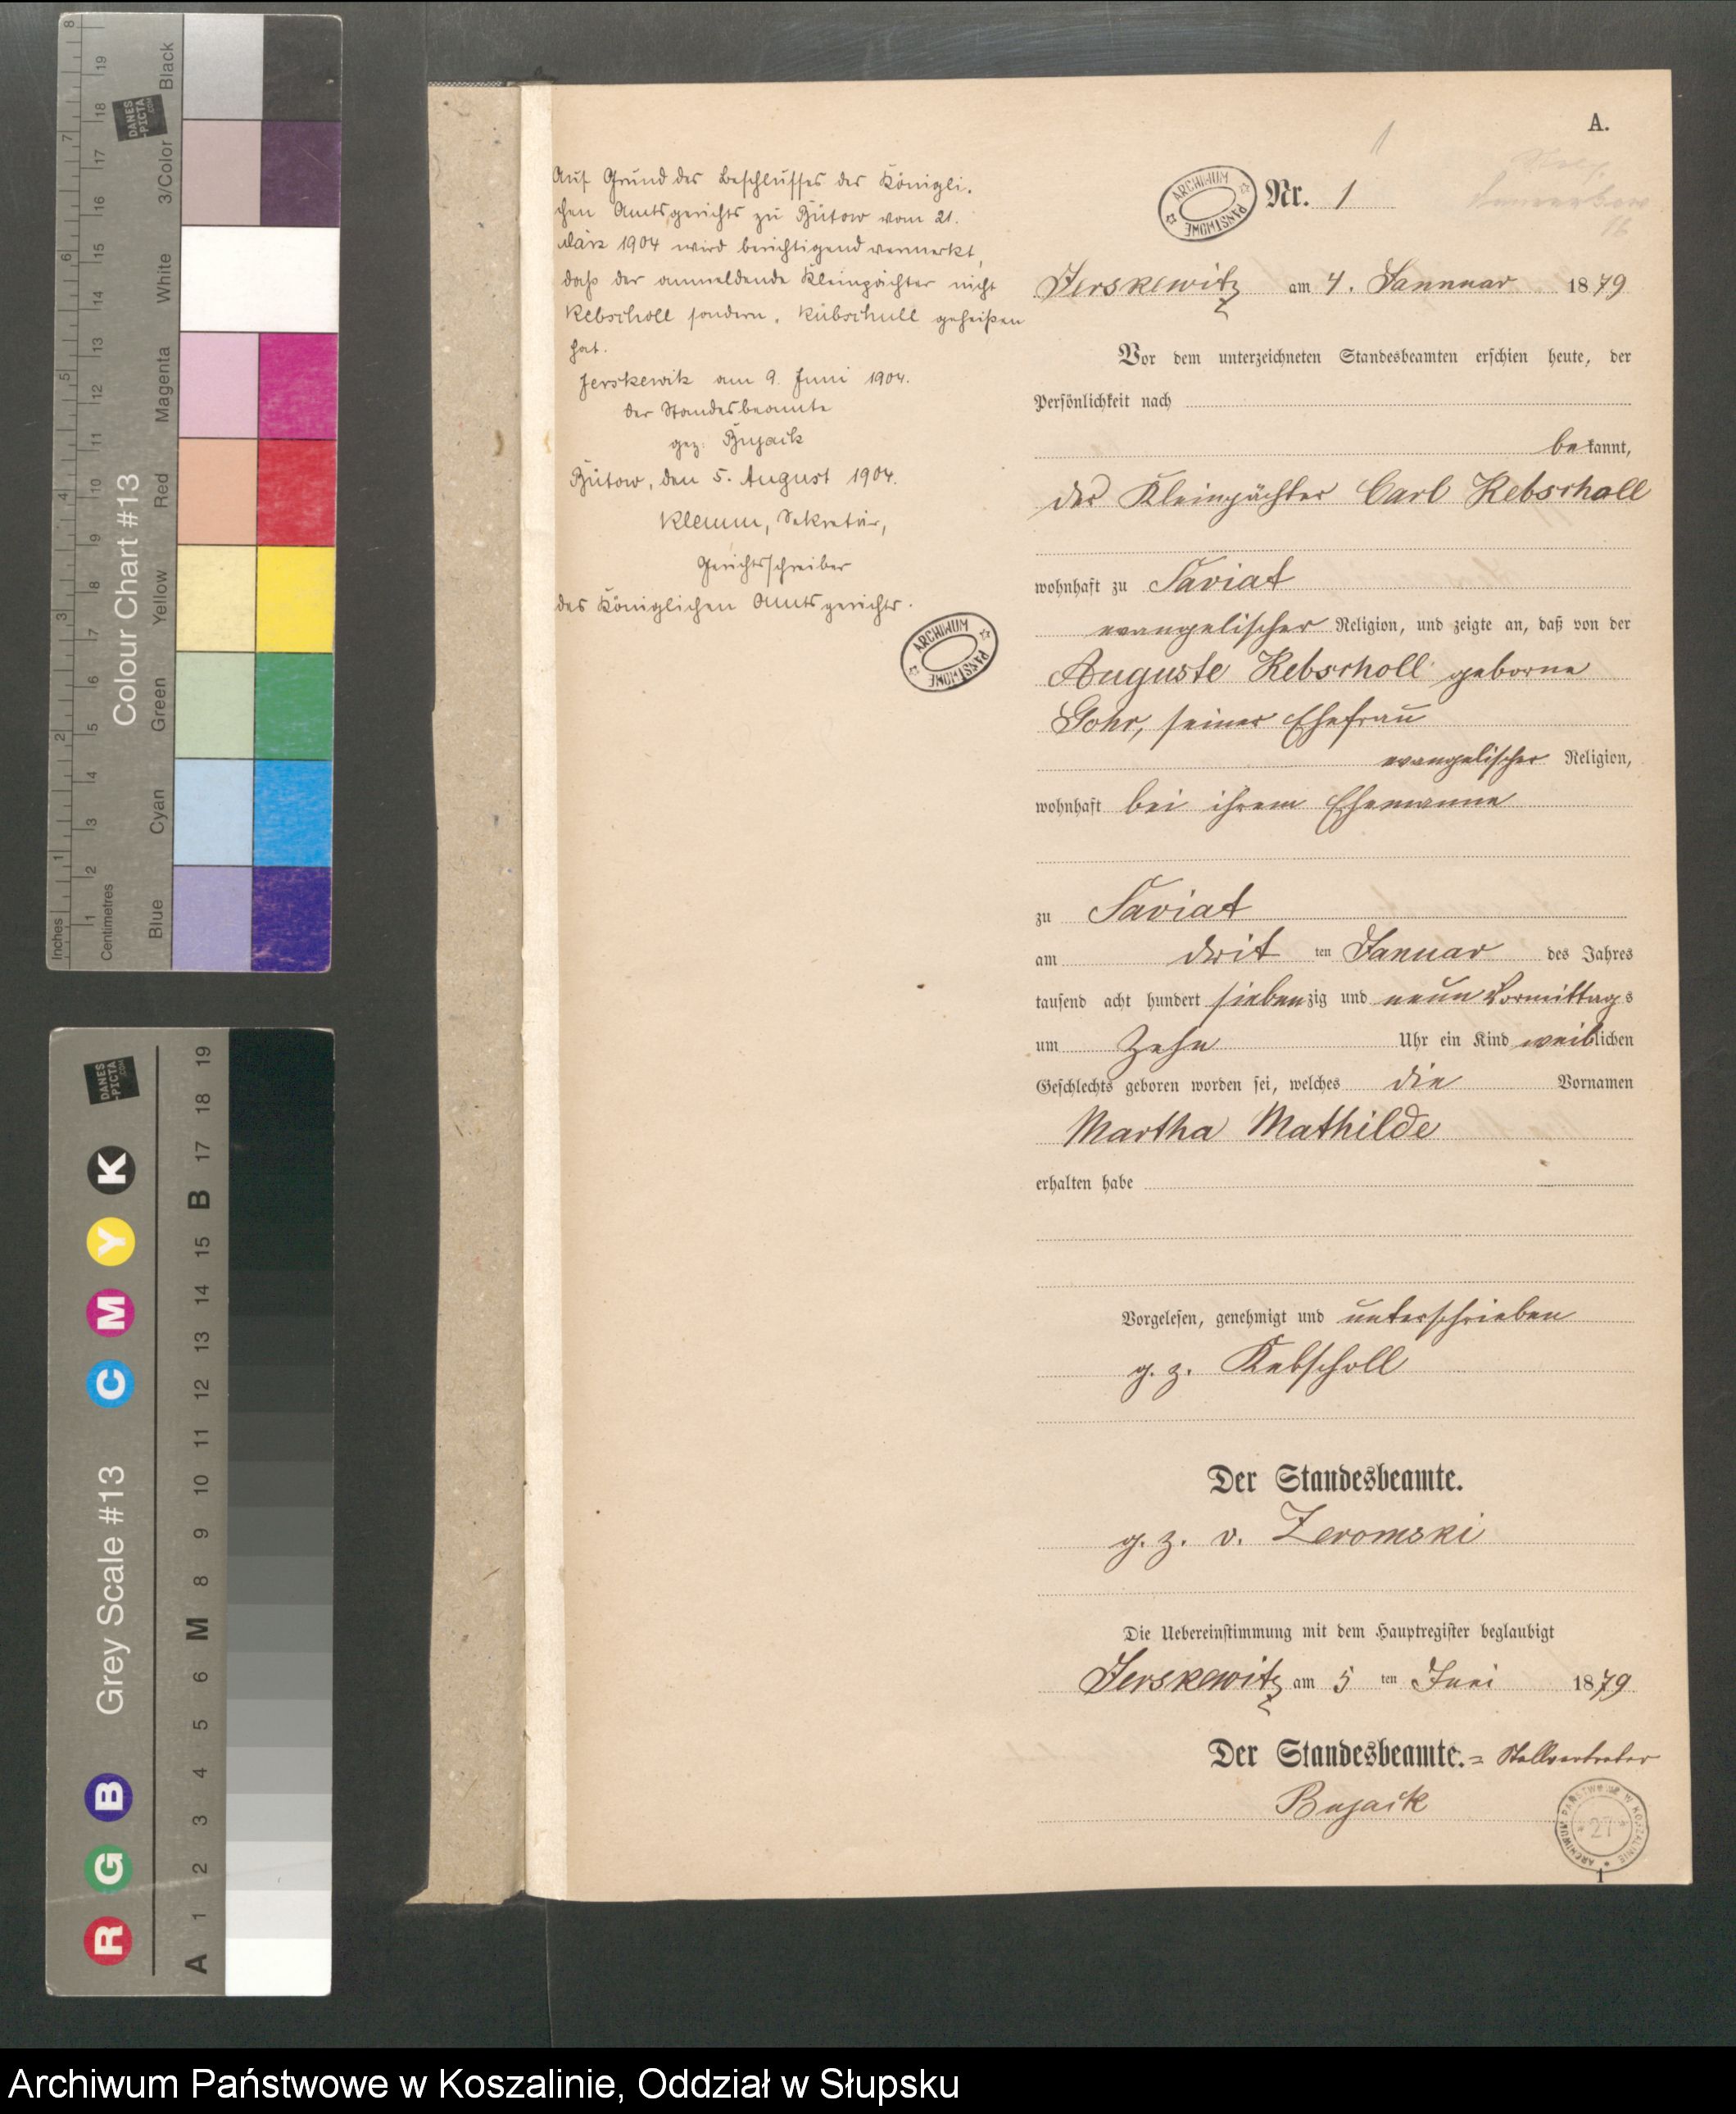 A.
Nr. 1
ARCHIWUM PAŃSTWOWE
Jerskewitz am 4. Januar 1879
Vor dem unterzeichneten Standesbeamten erschien heute, der
Persönlichkeit nach
bekannt,
der Kleinpächter Carl Kebscholl
wohnhaft zu Saviat
evangelischer Religion, und zeigte an, daß von der
Auguste Kebscholl geborne
Gohr, seiner Ehefrau
evangelischer Religion,
wohnhaft bei ihrem Ehemanne
zu Saviat
am drit ten Januar des Jahres
tausend acht hundert siebenzig und neun Vormittags
um Zehn Uhr ein Kind weiblichen
Geschlechts geboren worden sei, welches die Vornamen
Martha Mathilde
erhalten habe
Vorgelesen, genehmigt und unterschrieben
g. z. Kebscholl
Der Standesbeamte.
g. z. v. Zeromski
Die Uebereinstimmung mit dem Hauptregister beglaubigt
Jerskewitz am 5 ten Juni 1879
Der Standesbeamte.= Stellvertreter
Bujack
ARCHIWUM PAŃSTWOWE W KOSZALINIE
27
1
Auf Grund des Beschlusses des Königli-
chen Amtsgerichts zu Bütow vom 21.
März 1904 wird berichtigend vermerkt,
daß der anmeldende Kleinpächter nicht
Kebscholl sondern, Kübschull geheißen
hat.
Jerskewitz am 9. Juni 1904.
der Standesbeamte
gez: Bujack
Bütow, den 5. August 1904.
Klemm, Sekretär,
Gerichtsschreiber
des Königlichen Amtsgerichts.
ARCHIWUM PAŃSTWOWE
Colour Chart #13
DANES-PICTA.COM
Blue Cyan Green Yellow Red Magenta White 3/Color Black
Inches 1 2 3 4 5 6 7 8
Centimetres 1 2 3 4 5 6 7 8 9 10 11 12 13 14 15 16 17 18 19
Grey Scale #13
DANES-PICTA.COM
R G B C M Y K
A 1 2 3 4 5 6 M 8 9 10 11 12 13 14 15 B 17 18 19
Archiwum Państwowe w Koszalinie, Oddział w Słupsku